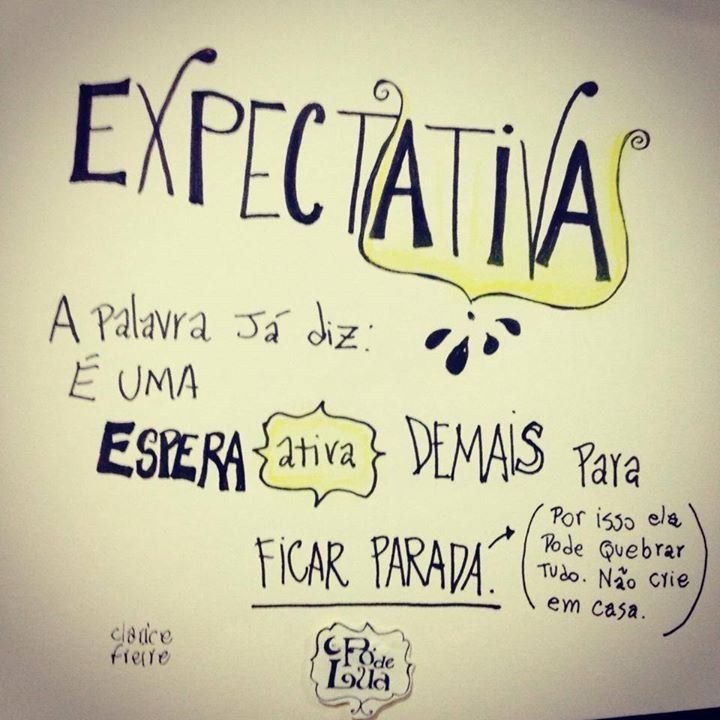 EXPECTATIVA
A Palavra Já diz:
É UMA
ESPERA ativa DEMAIS Para
FICAR PARADA.
(Por isso ela
Pode Quebrar
Tudo. Não crie
em casa.)
clarice
freire
Pó de
Lua